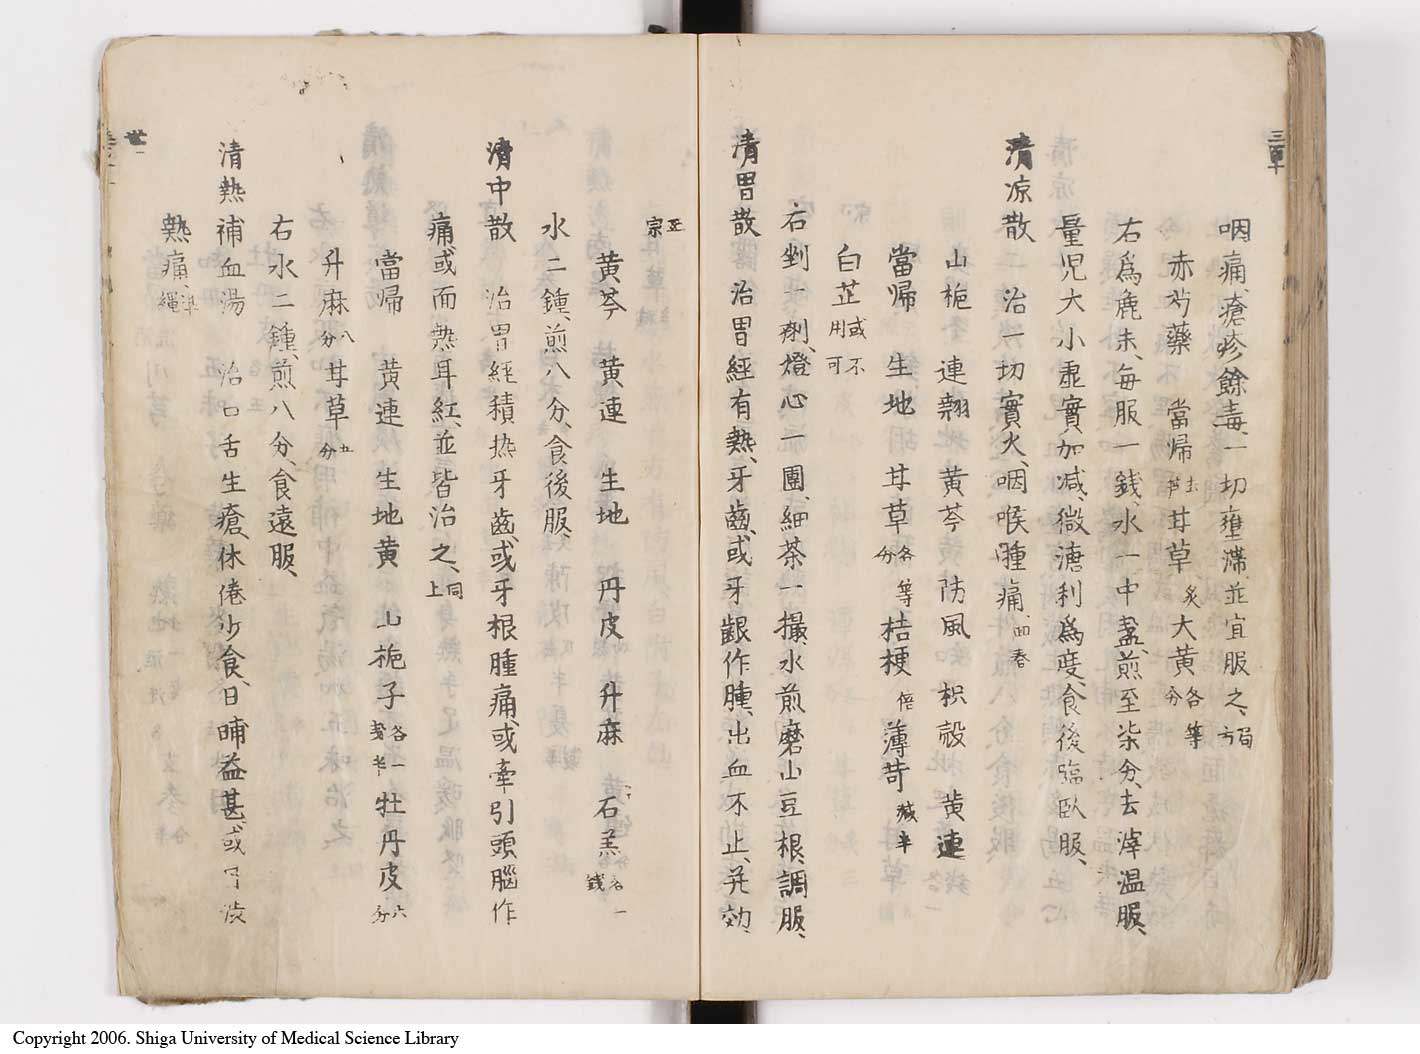 咽痛、瘡疹餘毒、一切壅滞並宜服之、局方
赤芍藥 當帰去芦 甘草炙 大黄各等分
右為麁末、毎服一銭水一中盞、煎至柒分、去滓温服、
量児大小虚實加减、微溏利為度、食後臨臥服、
清凉散 治一切實火、咽喉腫痛、回春
山梔 連翹 黄芩 防風 枳殻 黄連
當帰 生地 甘草各等分 桔梗倍 薄荷减半
白芷或不用可
右剉一剤、燈心一團、細茶一撮水煎磨山豆根調服、
清胃散 治胃經有熱、牙齒或牙齦作腫、出血不止、并効、
黄芩 黄連 生地 丹皮 升麻 石羔各一銭
水二鍾、煎八分食後服、
清中散 治胃経積热牙齒、或牙根腫痛、或牽引頭腦作
痛、或而熱耳紅、並皆治之、同上
當帰 黄連 生地黄 山梔子各一銭半 牡丹皮六分
升麻八分 甘草五分
右水二鍾、煎八分、食遠服、
清熱補血湯 治口舌生瘡、休倦少食、日晡益甚、或弓渋
熱痛、準縄
三百十